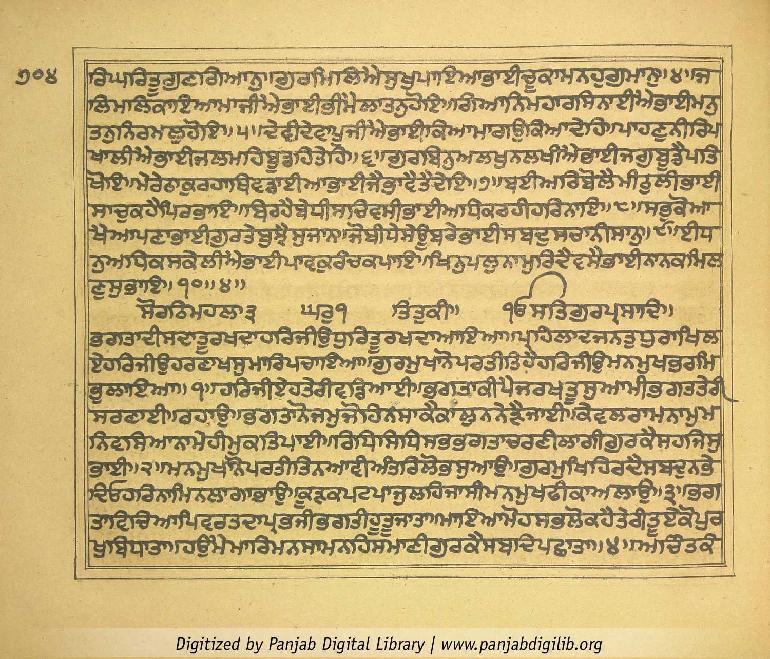 ੭੦੪
ਰਿਘਰਿਤੂਗੁਣਾਗਿਆਨੁ॥ਗੁਰਮਿਲਿਐਸੁਖੁਪਾਇਆਭਾਈਚੂਕਾਮਨਹੁਗੁਮਾਨੁ॥੪॥ਜ
ਲਿਮਲਿਕਾਇਆਮਾਜੀਐਭਾਈਭੀਮੈਲਾਤਨੁਹੋਇ॥ਗਿਆਨਿਮਹਾਰਸਿਨਾਈਐਭਾਈਮਨੁ
ਤਨੁਨਿਰਮਲੁਹੋਇ॥੫॥ਦੇਵੀਦੇਵਾਪੂਜੀਐਭਾਈਕਿਆਮਾਗਉਕਿਆਦੇਹਿ॥ਪਾਹਣੁਨੀਰਿਪ
ਖਾਲੀਐਭਾਈਜਲਮਹਿਬੂਡਹਿਤੇਹਿ॥੬॥ਗੁਰਬਿਨੁਅਲਖੁਨਲਖੀਐਭਾਈਜਗੁਬੂਡੈਪਤਿ
ਖੋਇ॥ਮੇਰੇਠਾਕੁਰਹਾਥਿਵਡਾਈਆਭਾਈਜੈਭਾਵੈਤੈਦੇਇ॥੭॥ਬਈਅਰਿਬੋਲੈਮੀਠੁਲੀਭਾਈ
ਸਾਚੁਕਹੈਪਿਰਭਾਇ॥ਬਿਰਹੈਬੇਧੀਸਚਿਵਸੀਭਾਈਅਧਿਕਰਹੀਹਰਿਨਾਇ॥੮॥ਸਭੁਕੋਆ
ਖੈਆਪਣਾਭਾਈਗੁਰਤੇਬੁਝੈਸੁਜਾਨੁ॥ਜੋਬੀਧੇਸੇਊਬਰੇਭਾਈਸਬਦੁਸਚਾਨੀਸਾਨੁ॥੯॥ਈਧ
ਨੁਅਧਿਕਸਕੇਲੀਐਭਾਈਪਾਵਕੁਰੰਚਕਪਾਇ॥ਖਿਨੁਪਲੁਨਾਮੁਰਿਦੈਵਸੈਭਾਈਨਾਨਕਮਿਲ
ਣੁਸੁਭਾਇ॥੧੦॥੪॥
ਸੋਰਠਿਮਹਲਾ੩ ਘਰੁ੧ ਤਿਤੁਕੀ॥ ੴਸਤਿਗੁਰਪ੍ਰਸਾਦਿ॥
ਭਗਤਾਦੀਸਦਾਤੂਰਖਦਾਹਰਿਜੀਉਧੁਰਿਤੂਰਖਦਾਆਇਆ॥ਪ੍ਰਹਿਲਾਦਜਨਤੁਧੁਰਾਖਿਲ
ਏਹਰਿਜੀਉਹਰਣਾਖਸੁਮਾਰਿਪਚਾਇਆ॥ਗੁਰਮੁਖਾਨੋਪਰਤੀਤਿਹੈਹਰਿਜੀਉਮਨਮੁਖਭਰਮਿ
ਭੁਲਾਇਆ॥੧॥ਹਰਿਜੀਏਹਤੇਰੀਵਡਿਆਈ॥ਭਗਤਾਕੀਪੈਜਰਖੁਤੂਸੁਆਮੀਭਗਤਤੇਰੀ
ਸਰਣਾਈ॥ਰਹਾਉ॥ਭਗਤਾਨੋਜਮੁਜੋਹਿਨਸਾਕੈਕਾਲੁਨਨੇੜੈਜਾਈ॥ਕੇਵਲਰਾਮਨਾਮੁਮ
ਨਿਵਸਿਆਨਾਮੇਹੀਮੁਕਤਿਪਾਈ॥ਰਿਧਿਸਿਧਿਸਭਭਗਤਾਚਰਣੀਲਾਗੀਗੁਰਕੈਸਹਜਿਸੁ
ਭਾਈ॥੨॥ਮਨਮੁਖਾਨੋਪਰਤੀਤਿਨਆਵੀਅੰਤਰਿਲੋਭਸੁਆਉ॥ਗੁਰਮੁਖਿਹਿਰਦੈਸਬਦੁਨਭੇ
ਦਿਓਹਰਿਨਾਮਿਨਲਾਗਾਭਾਉ॥ਕੂੜਕਪਟਪਾਜੁਲਹਿਜਾਸੀਮਨਮੁਖਫੀਕਾਅਲਾਉ॥੩॥ਭਗ
ਤਾਵਿਚਿਆਪਿਵਰਤਦਾਪ੍ਰਭਜੀਭਗਤੀਹੂਤੂਜਾਤਾ॥ਮਾਇਆਮੋਹਸਭਲੋਕਹੈਤੇਰੀਤੂਏਕੋਪੁਰ
ਖੁਬਿਧਾਤਾ॥ਹਉਮੈਮਾਰਿਮਨਸਾਮਨਹਿਸਮਾਣੀਗੁਰਕੈਸਬਦਿਪਛਾਤਾ॥੪॥ਅਚਿੰਤਕੰ
Digitized by Panjab Digital Library | www.panjabdigilib.org